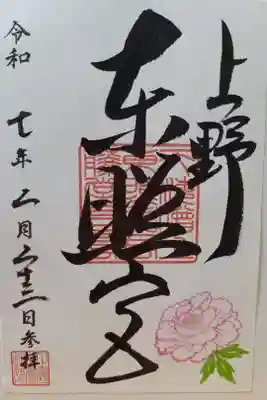 上野
東照宮
令和
七年二月二十三日参拝